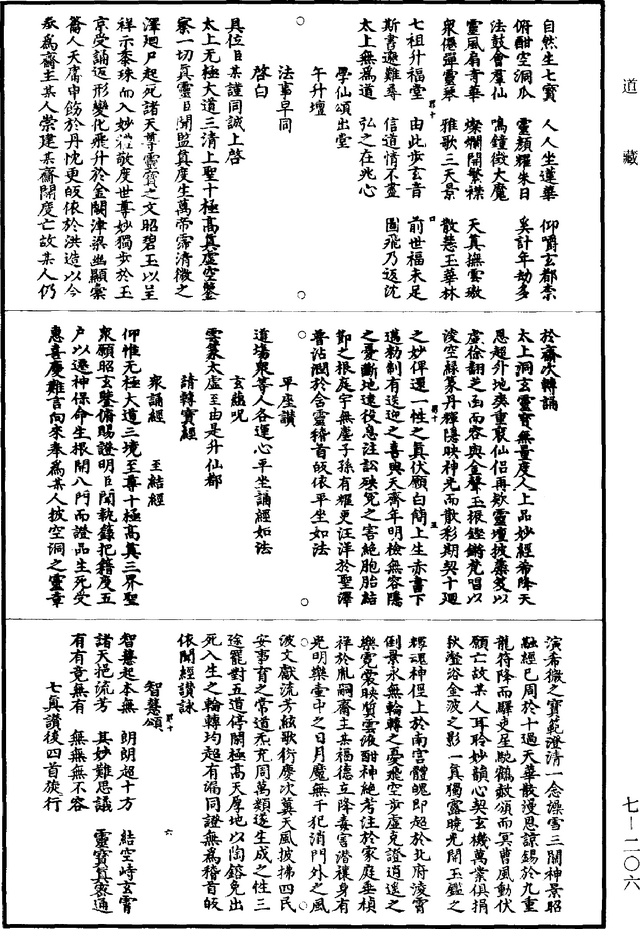 道藏
自然生七寶　人人坐蓮華　仰嚼玄都柰
俯酣空洞瓜　靈顏耀朱日　奚計年劫多
法鼓會羣仙　鳴鐘徵大魔　天真撫雲璈
靈風扇奇華　燦爛開繁襟　散花玉華林
衆僊彈靈琴　雅歌三天景　前世福未足
七祖升福堂　由此步玄音　圖飛乃返沈
斯書邈難尋　信道情不盡
太上無為道　弘之在兆心
學仙頌出堂
午升壇
法事早同
啓白
具位臣某謹同誠上啓
太上無極大道三清上聖十極高真虛空鑒
察一切真靈臣聞監真度生萬帝霈清微之
澤廻尸起死諸天尊靈寶之文昭碧玉以呈
祥示黍珠而入妙敬度世尊妙獨步於玉
京受誦返形變化飛升於金闕津梁幽顯橐
籥人天膺申飭於丹忱更皈依於洪造以今
奉為齋主某人崇建某齋開度亡故某人仍
於齋次轉誦
太上洞玄靈寶無量度人上品妙經希降天
恩超外地爽重裒仙侣再欵靈壇披蘂笈以
虔徐翻芝函而容與金聲玉振鏗鏘競唱以
浚空蘇篆丹輝隱映神光而散彩期契十迴
之妙俾還一性之真伏願白簡上生赤書下
邁勑制有送迎之喜與天齊年明檢無容隱
之憂斷地遠役息注訟殃寃之害絶胞胎結
節之根庭宇無塵子孫有耀更汪洋於聖澤
普沾潤於含靈稽首皈依平坐如法
平座讃
道場衆等人各運心平坐誦經如法
玄蘊呪
雲篆太虛至由是升仙都
請轉寶經
衆誦經　至結經
仰惟無極大道三境至尊十極高真三界聖
衆願昭玄鑒俯賜證明臣聞執籙把籍度五
户以還神保命生根開八門而證品生死受
惠喜慶難言向來奉為某人披空洞之靈章
演希微之寶範澄清一念澡雪三關神景昭
融經已周於十過天華散漫恩諒錫於九重
龍符降而驛吏星馳鶴敕頒而冥曹風動伏
願亡故某人耳聆妙韻心契玄機萬業俱捐
秋瑩浴金波之影一真獨露曉光開玉鑑之
輝魂神徑上於南宫體魄即超於北府淩霄
倒景永無輪轉之憂飛空步虛克證逍遥之
樂霓裳映質雲液酣神絶考注於家庭垂禎
祥於胤嗣齋主某福德立降毒害潛禳身有
光明樂壺中之日月魔無干犯消門外之風
波文獻流芳絃歌衍慶次冀天風披拂四民
安事育之常道炁充周萬類遂生成之性三
途罷對五道停關極高天厚地以陶鎔免出
死入生之輪轉均超有漏同證無為稽首皈
依聞經讃詠
智慧頌
智慧起本無　朗朗超十方　結空峙玄霄
諸天挹流芳　其妙難思議　靈寶真實通
有有竟無有　無無無不容
七真讃後四首旋行
七—二〇六